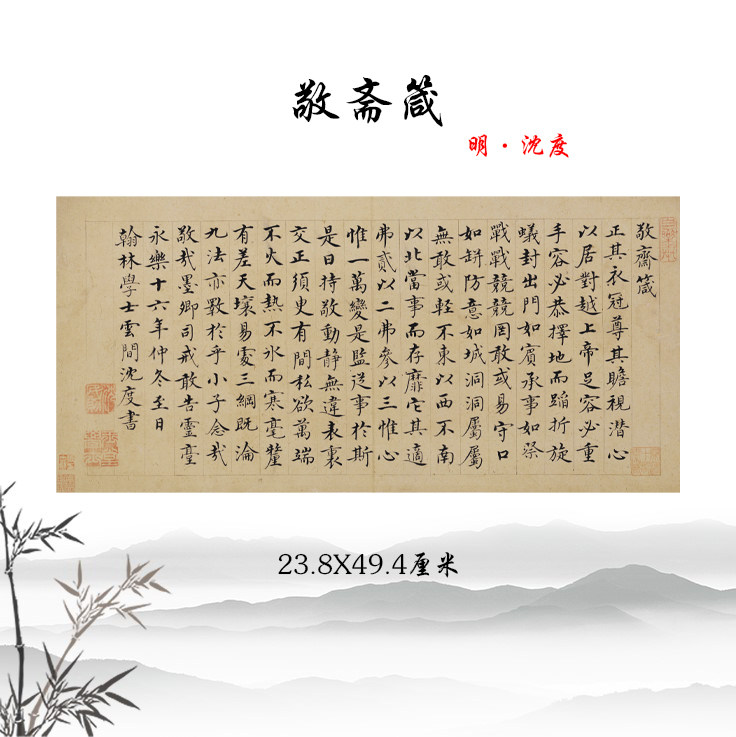 敬斋箴
明·沈度
敬齋箴
正其衣冠尊其瞻視潛心
以居對越上帝足容必重
手容必恭擇地而蹈折旋
蟻封出門如賓承事如祭
戰戰兢兢罔敢或易守口
如缾防意如城洞洞屬屬
無敢或輕不東以西不南
以北當事而存靡它其適
弗貳以二弗參以三惟心
惟一萬變是監從事於斯
是曰持敬動靜無違表裏
交正須臾有間私欲萬端
不火而熱不冰而寒毫釐
有差天壤易處三綱既淪
九法亦斁於乎小子念哉
敬哉墨卿司戒敢告靈臺
永樂十六年仲冬至日
翰林學士雲間沈度書
23.8X49.4厘米